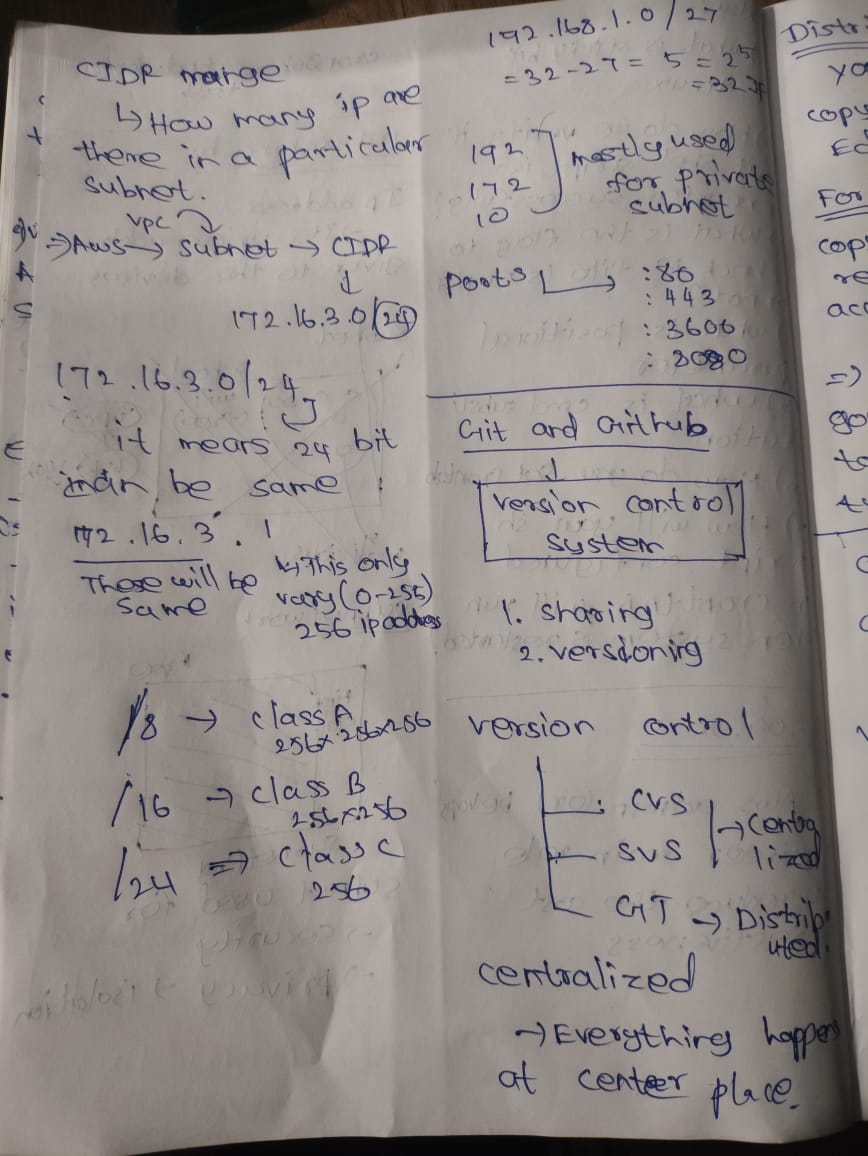 CIDR range
↳ How many ip are
there in a particular
subnet.
vpc
⇒ Aws → subnet → CIDR
↓
172.16.3.0/24
172.16.3.0/24
it means 24 bit
be same
172.16.3.1
These will be
same
↳ This only
vary (0-255)
256 ip address
/8 → class A
256x256x256
/16 → class B
256x256
/24 ⇒ class C
256
192.168.1.0/27
= 32-27 = 5 = 2^5
= 32
192
172
10
mostly used
for private
subnet
ports → :80
:443
:3606
:8080
Git and Github
↓
version control
system
1. sharing
2. versioning
version control
CVS
SVS
→ Centra
lized
GIT → Distrib
uted.
centralized
→ Everything happens
at center place.
Distr
yo
copy
For
cop
re
acc
=)
go
to